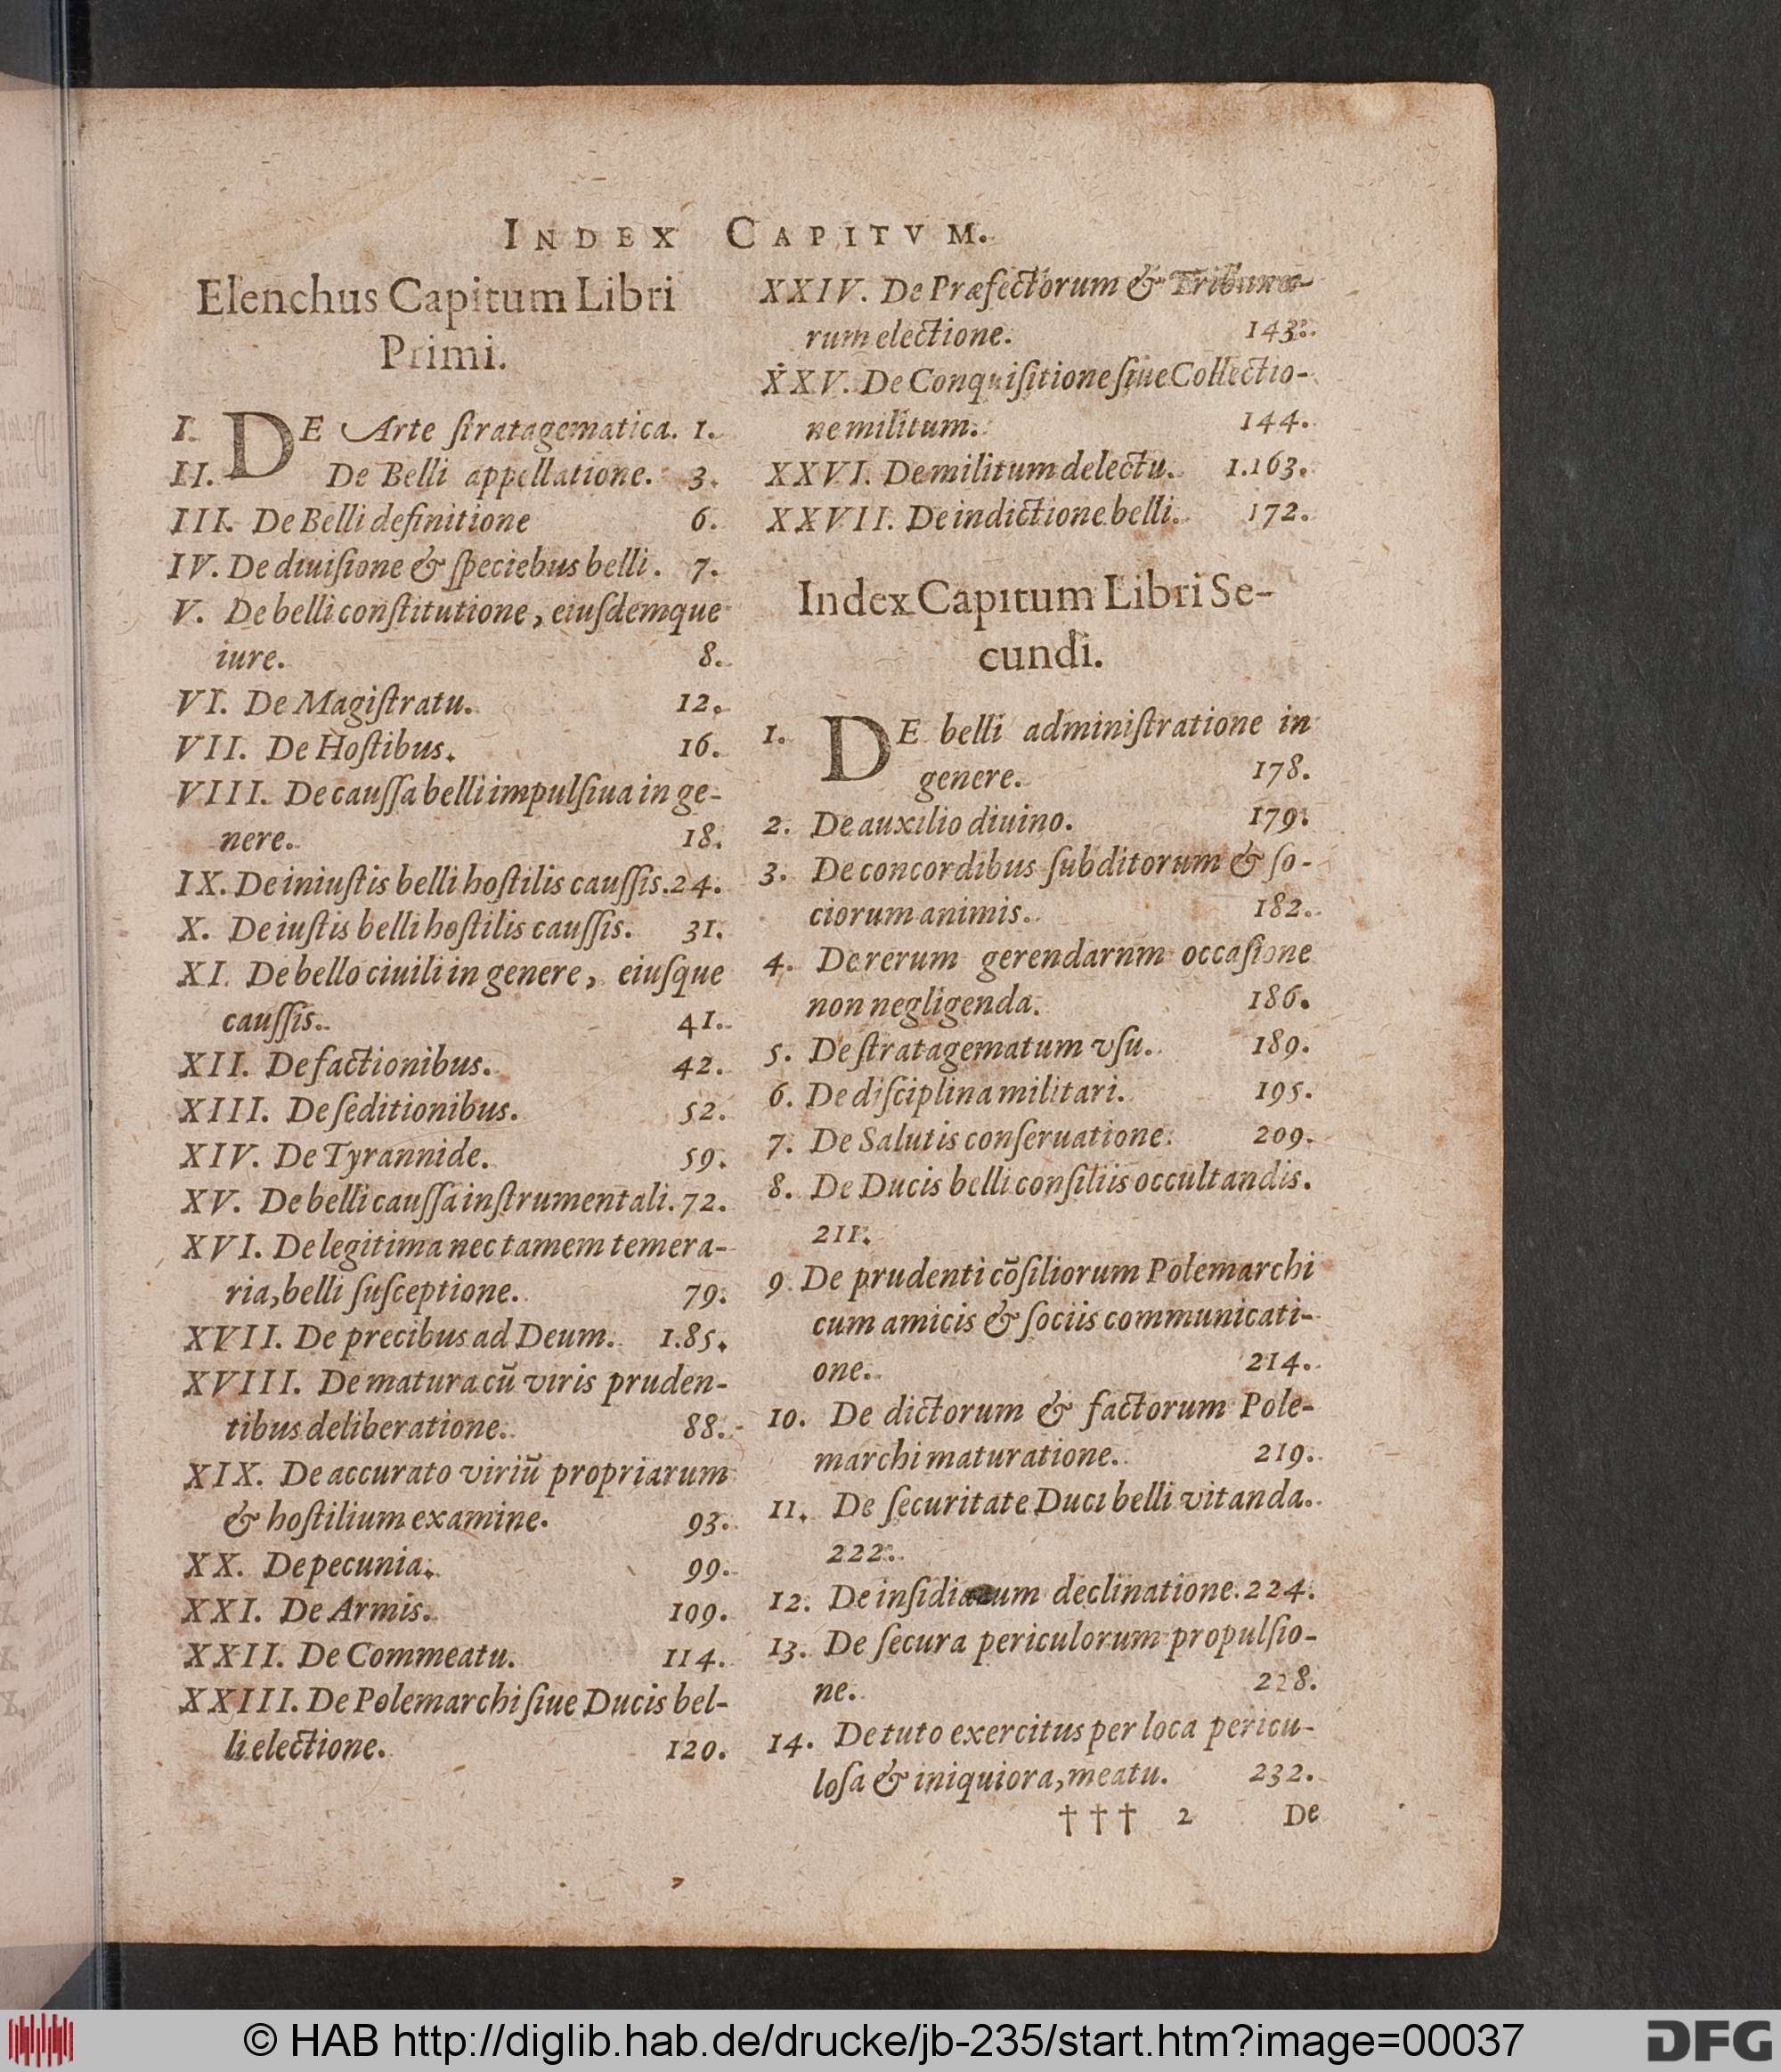 INDEX CAPITVM.
Elenchus Capitum Libri
Primi.
I. DE Arte stratagematica. 1.
II. De Belli appellatione. 3.
III. De Belli definitione 6.
IV. De diuiſione & ſpeciebus belli. 7.
V. De belli conſtitutione, eiuſdemque
iure. 8.
VI. De Magiſtratu. 12.
VII. De Hoſtibus. 16.
VIII. De cauſſa belli impulſiua in ge-
nere. 18.
IX. De iniuſtis belli hoſtilis cauſſis. 24.
X. De iuſtis belli hoſtilis cauſſis. 31.
XI. De bello ciuili in genere, eiuſque
cauſſis. 41.
XII. De factionibus. 42.
XIII. De ſeditionibus. 52.
XIV. De Tyrannide. 59.
XV. De belli cauſſa inſtrumentali. 72.
XVI. De legitima nec tamem temera-
ria, belli ſuſceptione. 79.
XVII. De precibus ad Deum. 1.85.
XVIII. De matura cū viris pruden-
tibus deliberatione. 88.
XIX. De accurato viriū propriarum
& hoſtilium examine. 93.
XX. De pecunia. 99.
XXI. De Armis. 109.
XXII. De Commeatu. 114.
XXIII. De Polemarchi ſiue Ducis bel-
li electione. 120.
XXIV. De Præfectorum & Tribuno-
rum electione. 143.
XXV. De Conquiſitione ſiue Collectio-
ne militum. 144.
XXVI. De militum delectu. 1.163.
XXVII. De indictione belli. 172.
Index Capitum Libri Se-
cundi.
1. DE belli adminiſtratione in
genere. 178.
2. De auxilio diuino. 179.
3. De concordibus ſubditorum & ſo-
ciorum animis. 182.
4. De rerum gerendarnm occaſione
non negligenda. 186.
5. De ſtratagematum vſu. 189.
6. De diſciplina militari. 195.
7. De Salutis conſeruatione. 209.
8. De Ducis belli conſiliis occultandis.
211.
9. De prudenti cōſiliorum Polemarchi
cum amicis & ſociis communicati-
one. 214.
10. De dictorum & factorum Pole-
marchi maturatione. 219.
11. De ſecuritate Duci belli vitanda.
222.
12. De inſidiarum declinatione. 224.
13. De ſecura periculorum propulſio-
ne. 228.
14. De tuto exercitus per loca pericu-
loſa & iniquiora, meatu. 232.
††† 2 De
© HAB http://diglib.hab.de/drucke/jb-235/start.htm?image=00037
DFG